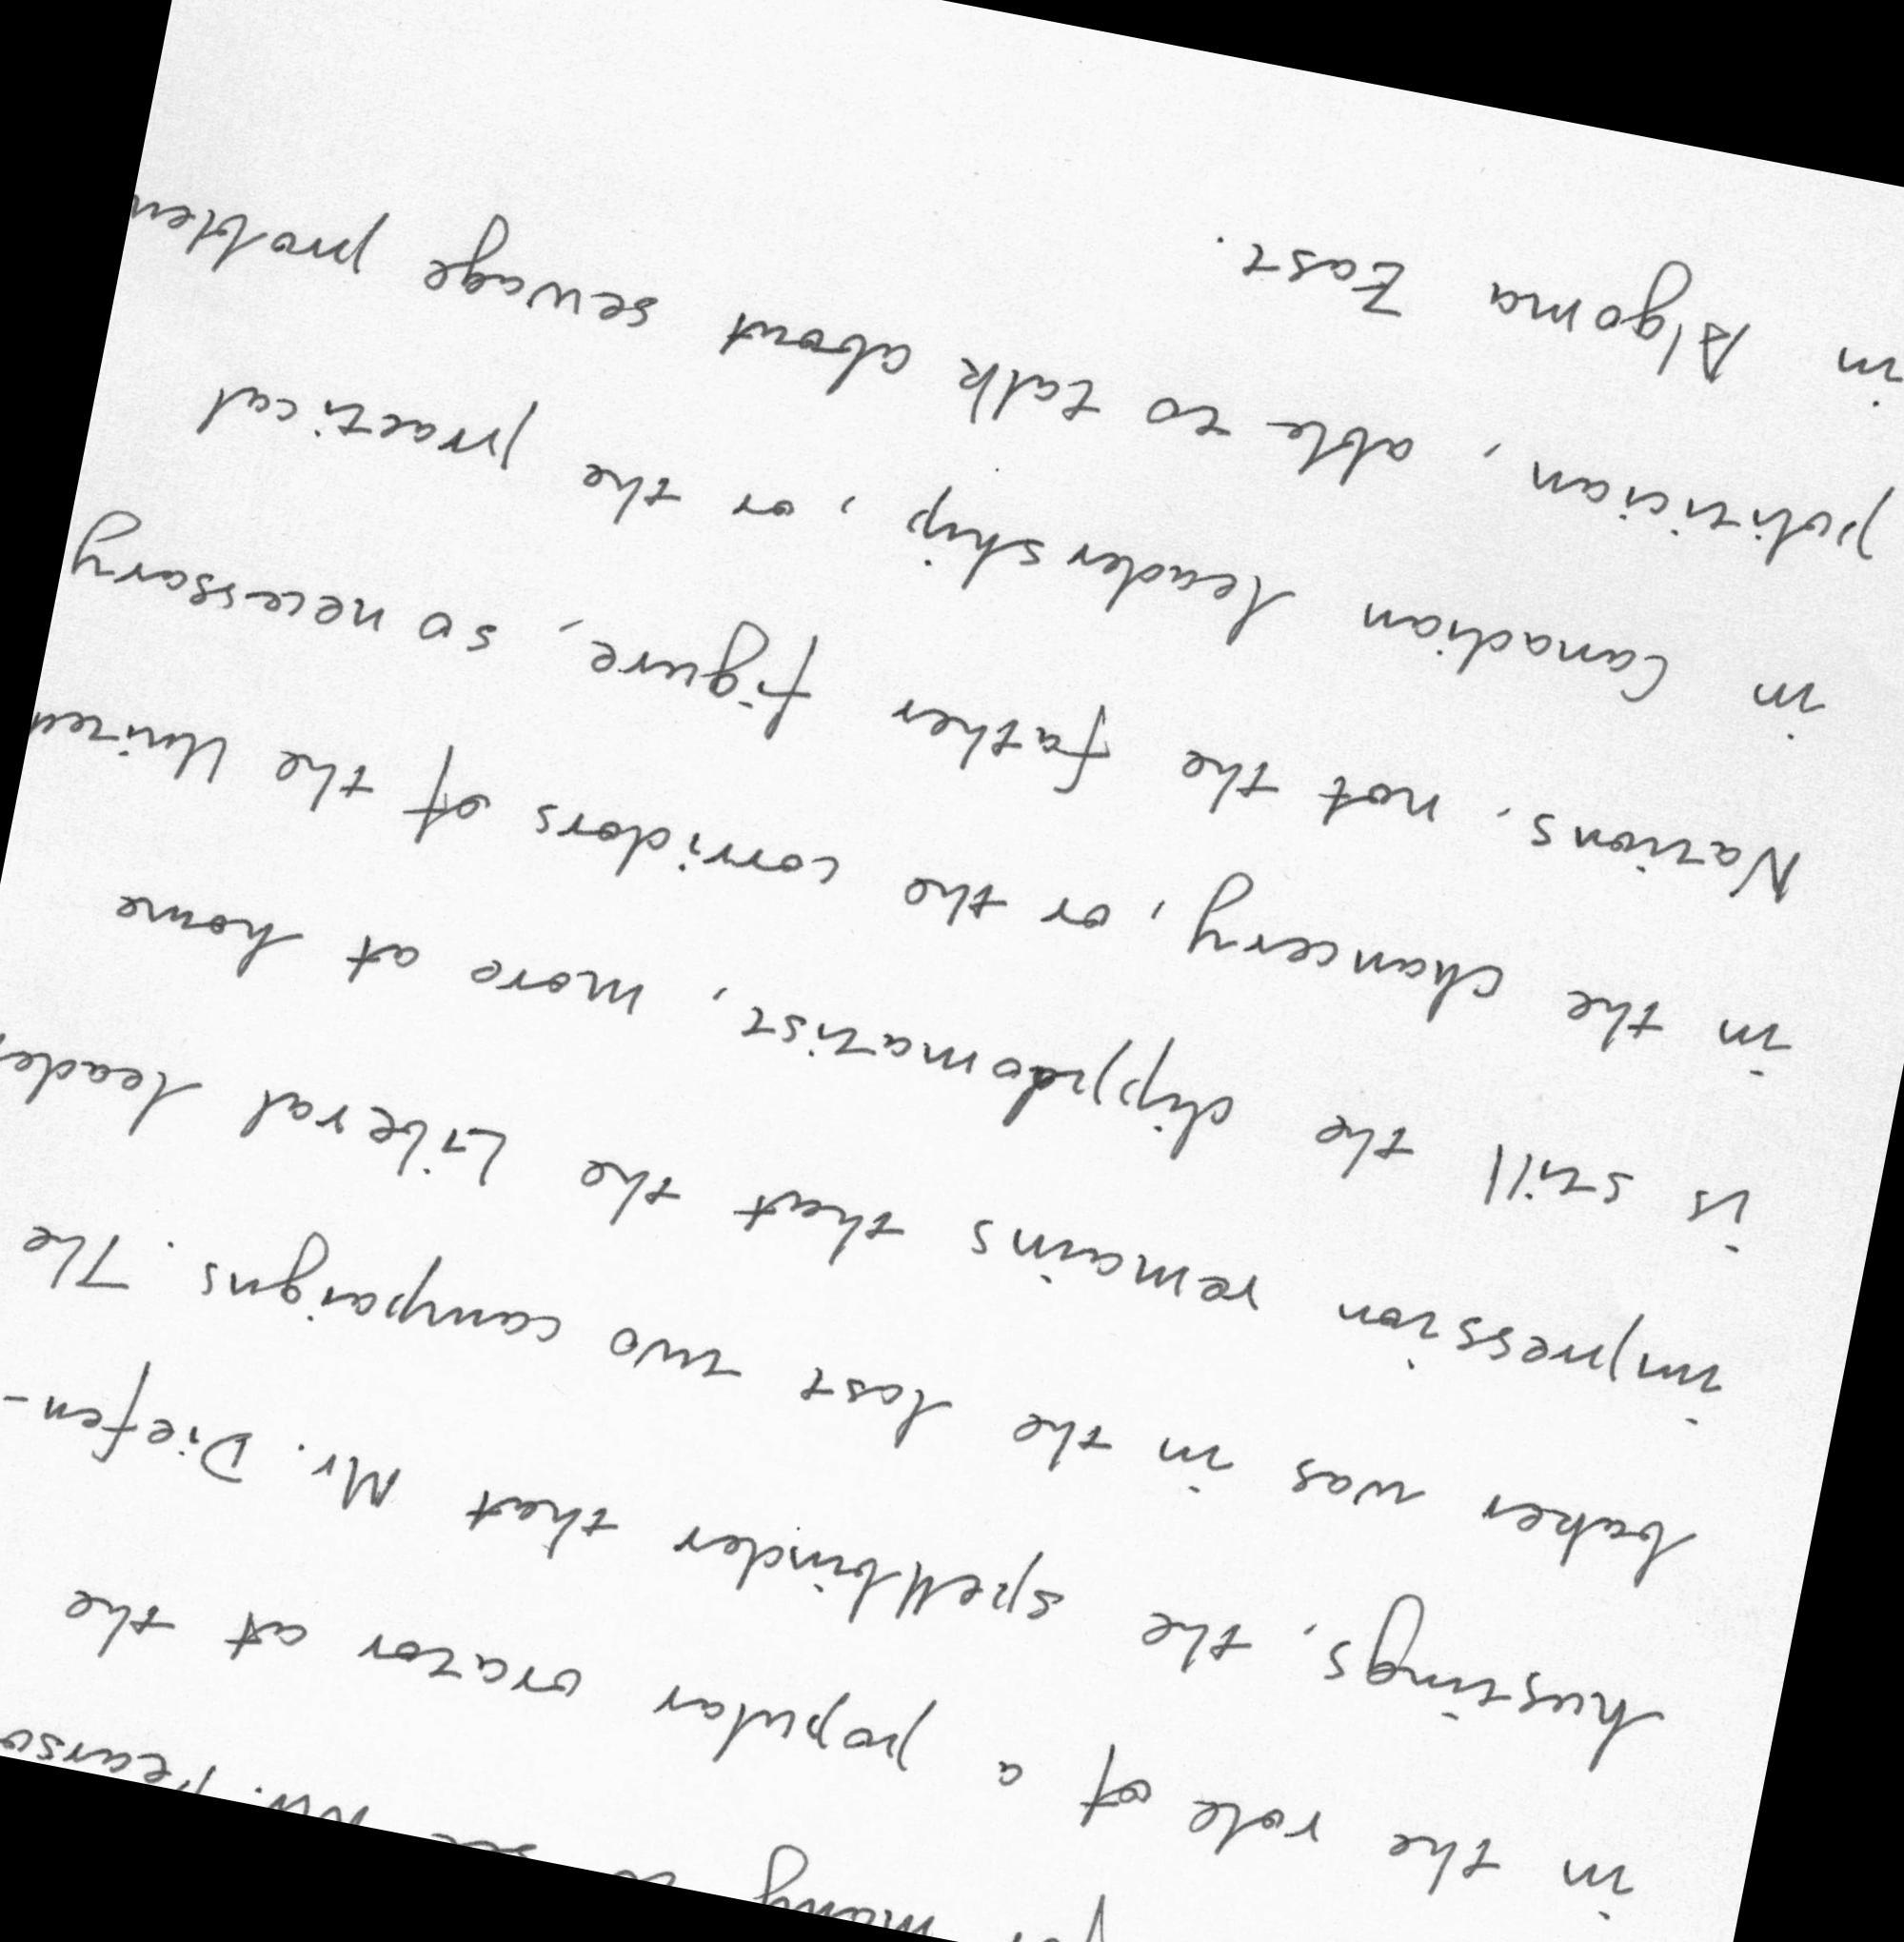 many to see Mr.
in the role of a popular orator at the
hustings, the spellbinder that Mr. Diefen-
baker was in the last two campaigns. The
impression remains that the Liberal leader
is still the dipplomatist, more at home
in the chancery, or the corridors of the United
Nations, not the father figure, so necessary
in Canadian leadership, or the practical
politician, able to talk about sewage problem
in Algoma East.